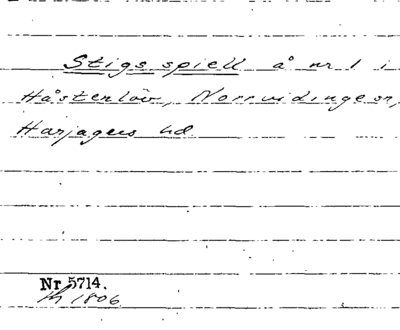 Stigs spiell å nr 1 i
Håstenlöv, Norrvidinge sn,
Harjagers hd
Nr 5714.
1806